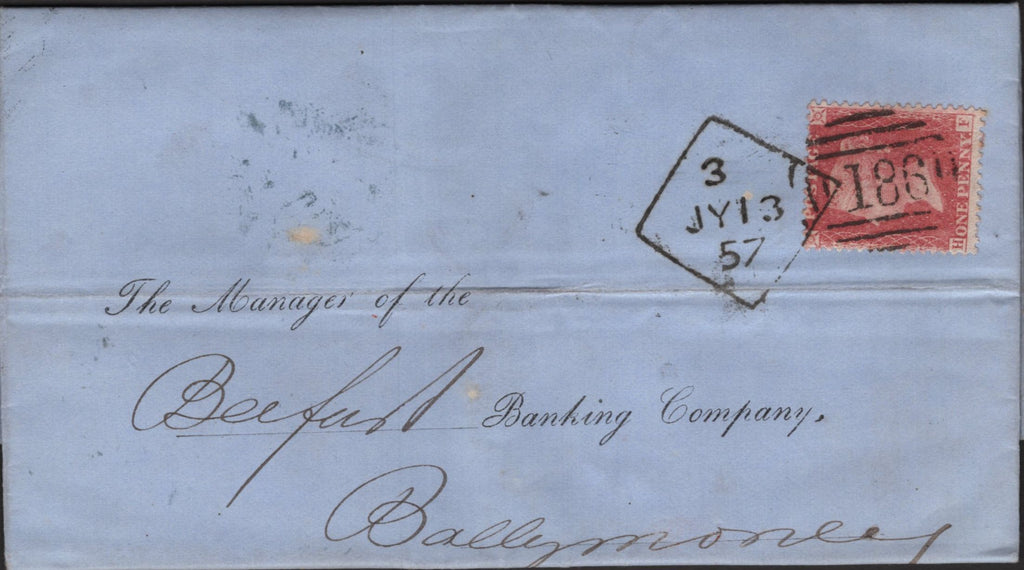 3
JY13
57
186
ONE PENNY
F
H
The Manager of the
Belfast Banking Company,
Ballymoney